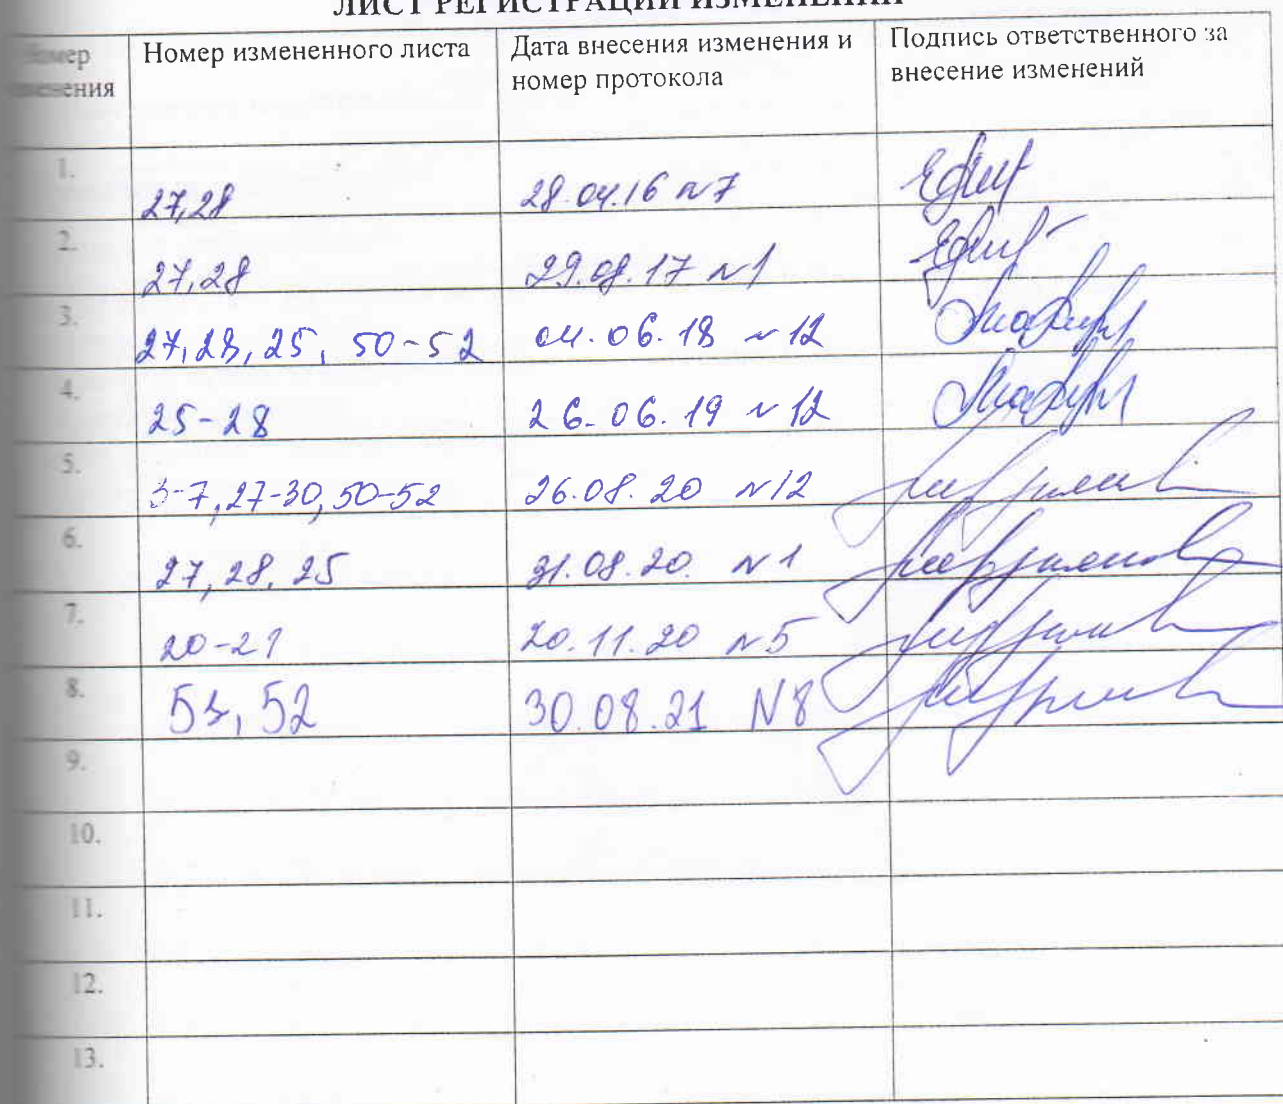 ЛИСТ РЕГИСТРАЦИИ ИЗМЕНЕНИЙ
Номер измененного листа Дата внесения изменения и номер протокола Подпись ответственного за внесение изменений
1. 27,28 28.04.16 N7
2. 27,28 29.08.17 N1
3. 27,28, 25, 50-52 04.06.18 N12
4. 25-28 26.06.19 N12
5. 3-7, 27-30, 50-52 26.08.20 N12
6. 27, 28, 25 31.08.20. N1
7. 20-21 20.11.20 N5
8. 51, 52 30.08.21 N8
9.
10.
11.
12.
13.